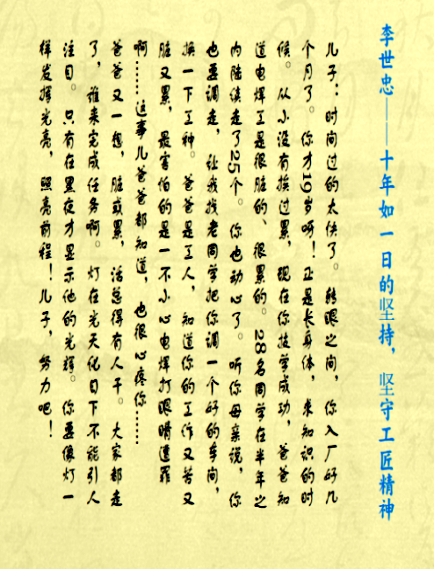 李世忠——十年如一日的坚持,坚守工匠精神
儿子:时间过的太快了。转眼之间,你入厂好几
个月了。你才19岁呀!正是长身体,求知识的时
候。从小没有挨过累,现在你技学成功,爸爸知
道电焊工是很脏的、很累的。28名同学在半年之
内陆续走了25个。你也动心了。听你母亲说,你
也要调走,让我找老同学把你调一个好的车间,
换一下工种。爸爸是工人,知道你的工作又苦又
脏又累,最害怕的是一不小心电焊打眼睛遭罪
啊……这事儿爸爸都知道,也很心疼你……
爸爸又一想,脏或累,活总得有人干。大家都走
了,谁来完成任务啊。灯在光天化日下不能引人
注目。只有在黑夜才显示他的光辉。你要像灯一
样发挥光亮,照亮前程!儿子,努力吧!